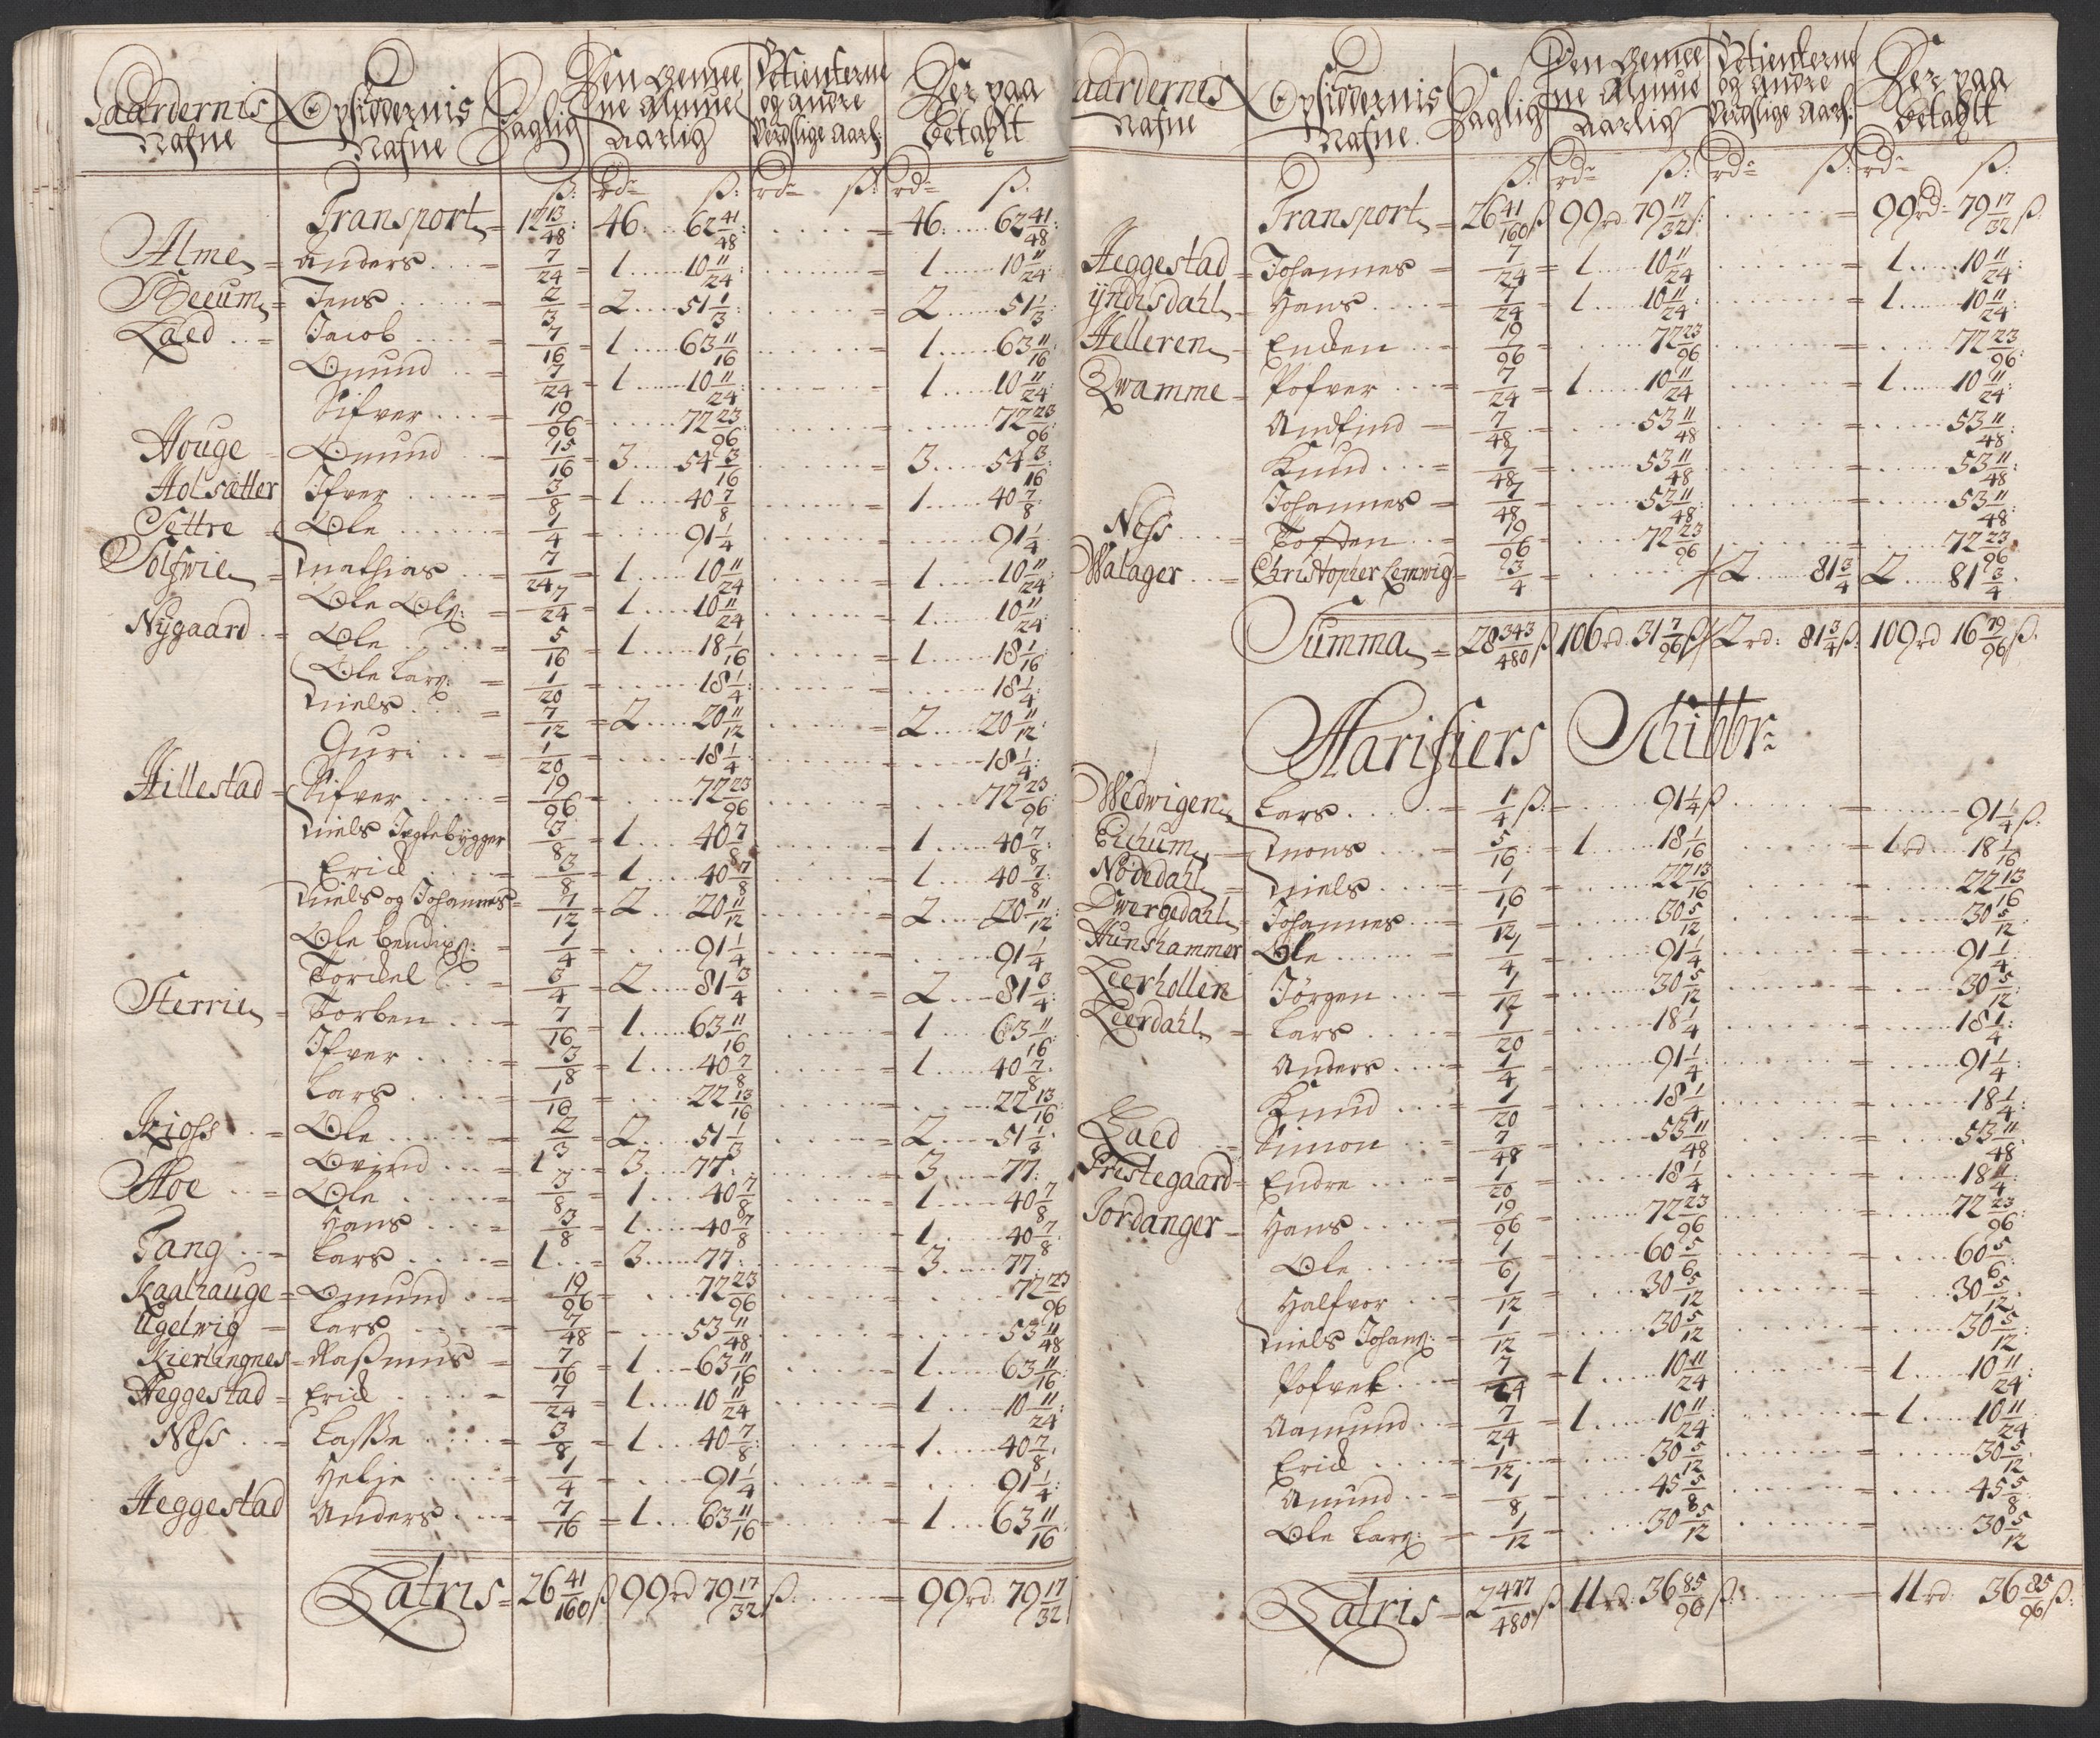 Gaardernis Nafne | Opsiddernis Nafne | Daglig | Den Gemee ne Almue Aarlig | Betienterne og andre Verdslige Aarl: | Der paa betahlt
ß: | rdr ß: | rdr ß: | rdr ß:
Transport = 12 13/48: 46: 62 41/48: = 46: 62 41/48:
Alme = Anders = 7/24 = 1 10 11/24: = 1 10 11/24:
Beeum = Jens = 2/3 = 2 51 1/3: = 2 51 1/3:
Laed = Jacob = 7/16 = 1 63 11/16 = 1 63 11/16
Omund = 7/24 = 1 10 11/24: = 1 10 11/24:
Sifver = 19/96 = 72 23/96 = 72 23/96:
Houge Omund = 15/16 = 3 54 3/16 = 3 54 3/16
Holsætter Ifver = 3/8 = 1 40 7/8 = 1 40 7/8:
Settre = Ole = 1/4 = 91 1/4 = 91 1/4:
Solswie = Mathias = 7/24 = 1 10 11/24 = 1 10 11/24
Ole Ols: = 7/24 = 1 10 11/24 = 1 10 11/24:
Nÿgaard = Ole = 5/16 = 1 18 1/16 = 1 18 1/16
Ole Lars: = 1/20 = 18 1/4: = 18 1/4:
Niels = 7/12 = 2 20 11/12 = 2 20 11/12:
Guri = 1/20 = 18 1/4 = 18 1/4:
Hillestad = Sifver = 19/96 = 72 23/96 = 72 23/96
Niels Jegtebygger 3/8 = 1 40 7/8 = 1 40 7/8:
Erick = 3/8 = 1 40 7/8 = 1 40 7/8:
Niels og Johannes = 7/12 = 2 20 11/12 = 2 20 11/12:
Ole Bendix: = 1/4 = 91 1/4 = 91 1/4:
Torckel = 3/4 = 2 81 3/4 = 2 81 3/4:
Sterrie = Torben = 7/16 = 1 63 11/16 = 1 63 11/16
Ifver = 3/8 = 1 40 7/8 = 1 40 7/8:
Lars = 1/16 = 22 13/16 = 22 13/16:
Kioss = Ole = 2/3 = 2 51 1/3 = 2 51 1/3:
Ovind = 1 = 3 77: = 3 77:
Hoe = Ole = 3/8 = 1 40 7/8 = 1 40 7/8
Hans = 3/8 = 1 40 7/8 = 1 40 7/8
Tang = Lars = 1 = 3 77: = 3 77:
Kaalhauge = Omund = 19/96 = 72 23/96 = 72 23/96
Ugelwig = Lars = 7/48 = 53 11/48 = 53 11/48
Kierlingnes = Rasmus = 7/16 = 1 63 11/16 = 1 63 11/16:
Heggestad = Erick = 7/24 = 1 10 11/24 = 1 10 11/24:
Ness = Lasse = 3/8 = 1 40 7/8: = 1 40 7/8:
Helje = 1/4 = 91 1/4 = 91 1/4:
Heggestad Anders = 7/16 = 1 63 11/16 = 1 63 11/16:
Latris = 26 41/160 ß 99 rd 79 17/32 ß: = 99 rd: 79 17/32
Gaardernes Nafne | Opsiddernis Nafne. | Daglig | Den Gemee ne Almue Aarlig | Betienterne og andre Verdslige Aarl: | Der paa betahlt
ß: | rdr ß: | rdr ß: | rdr ß:
Transport = 26 41/160 ß 99 rd 79 17/32 ß: = 99 rd: 79 17/32 ß.
Heggestad = Johannes = 7/24 = 1 10 11/24 = 1 10 11/24:
ÿndisdahl = Hans = 7/24 = 1 10 11/24: = 1 10 11/24:
Helleren = Enden = 19/96 = 72 23/96 = 72 23/96:
Qwamme = Pofver = 7/24 = 1 10 11/24 = 1 10 11/24
Andfind = 7/48 = 53 11/48 = 53 11/48:
Knud = 7/48 = 53 11/48 = 53 11/48:
Johannes = 7/48 = 53 11/48 = 53 11/48
Ness = Toften = 19/96 = 72 23/96 = 72 23/96
Walager = Christopher Lemwig = 3/4 = 2 81 3/4 2 81 3/4.
Summa = 28 343/480 ß 106 rd. 31 7/96 ß 2 rd: 81 3/4 ß: 109 rd 16 79/96 ß.
Harisiers Schibbr:
Wedwigen Lars 1/4 ß: = 91 1/4 ß = 91 1/4 ß:
Eichum = Mons 5/16 = 1 18 1/16 = 1 rd 18 1/16
Nödedahl = Niels 1/16 = 22 13/16 = 22 13/16
Dwergedahl = Johannes = 1/12 = 30 5/12 = 30 5/12:
Hunshammer Ole = 1/4 = 91 1/4 = 91 1/4:
Leerhollen Jörgen = 1/12 = 30 5/12 = 30 5/12:
Leerdahl = Lars = 1/20 = 18 1/4 = 18 1/4:
Anders = 1/4 = 91 1/4: = 91 1/4:
Knud = 1/20 = 18 1/4 = 18 1/4:
Laed = Simon = 7/48 = 53 11/48 = 53 11/48
Prestegaard = Endre = 1/20 = 18 1/4 = 18 1/4:
Jordanger = Hans = 19/96 = 72 23/96 = 72 23/96:
Ole = 1/6 = 60 5/6 = 60 5/6
Halfvor = 1/12 = 30 5/12 = 30 5/12.
Niels Johans: = 1/12 = 30 5/12 = 30 5/12:
Pofvel = 7/24 = 1 10 11/24 = 1 10 11/24:
Aamund = 7/24 = 1 10 11/24: = 1 10 11/24
Erick = 1/12 = 30 5/12 = 30 5/12
Amund = 1/8 = 45 5/8 = 45 5/8:
Ole Lars: = 1/12 = 30 5/12 = 30 5/12
Latris = 2 477/480 ß 11 rd: 36 85/96 ß: = 11 rd: 36 85/96 ß: